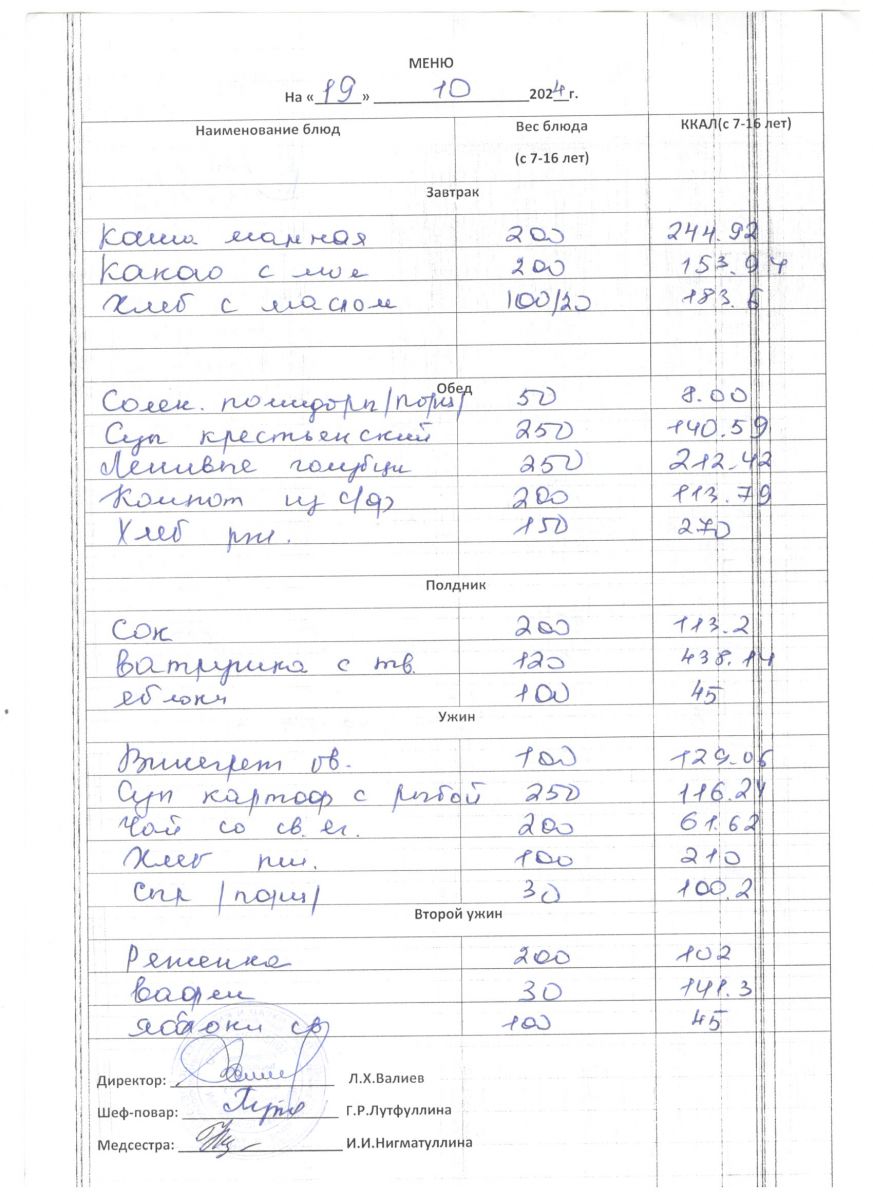 МЕНЮ
На «19» 10 2024 г.
Наименование блюд Вес блюда (с 7-16 лет) ККАЛ(с 7-16 лет)
Завтрак
Каша манная 200 244.92
Какао с мол 200 153.94
Хлеб с маслом 100/20 183.6
Обед
Солен. помидоры /порц/ 50 8.00
Суп крестьенский 250 140.59
Ленивые голубци 250 212.42
Компот из с/ф 200 113.79
Хлеб рж. 150 270
Полдник
Сок 200 113.2
Ватрушка с тв. 120 438.14
еблоки 100 45
Ужин
Винегрет ов. 100 129.06
Суп картоф с рыбой 250 116.24
Чай со св. яг. 200 61.62
Хлеб пш. 100 210
Сыр /порц/ 30 100.2
Второй ужин
Ряженка 200 102
Вафли 30 141.3
яблоки св 100 45
Директор: Л.Х.Валиев
Шеф-повар: Г.Р.Лутфуллина
Медсестра: И.И.Нигматуллина